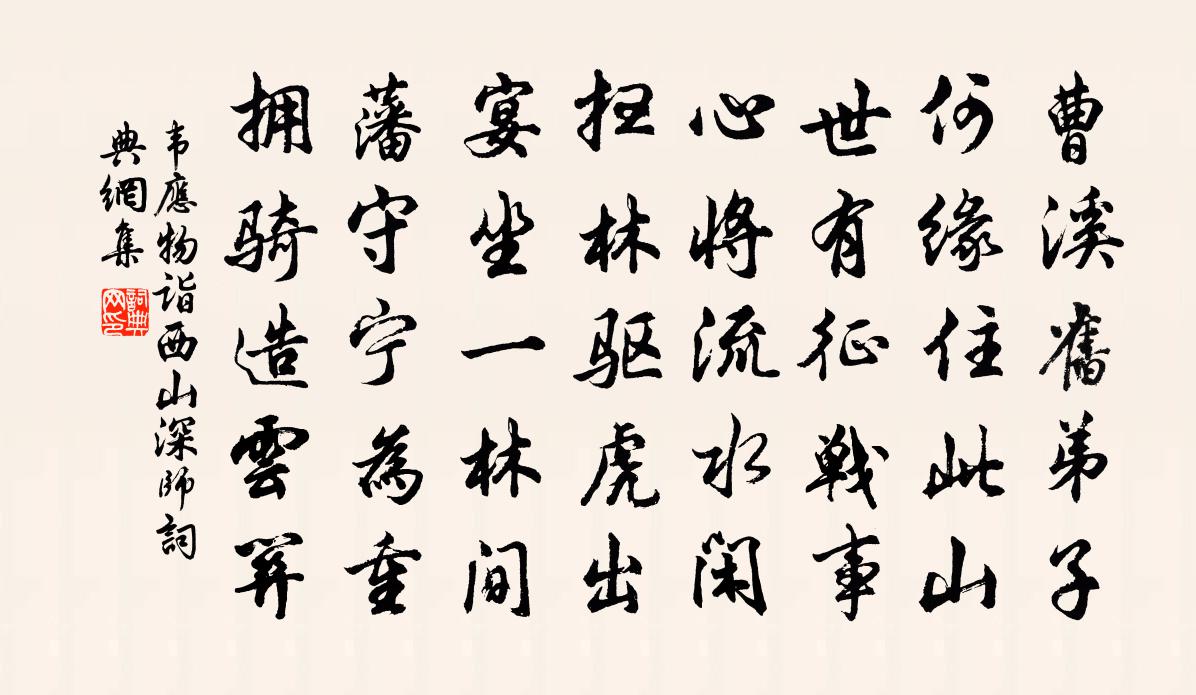 曹溪舊弟子
何缘住此山
世有征戦事
心将流水闲
扫林驱虎出
宴坐一林间
藩守宁為重
拥骑造雲関
韦應物诣西山深師詞
典網集
詞典
网印